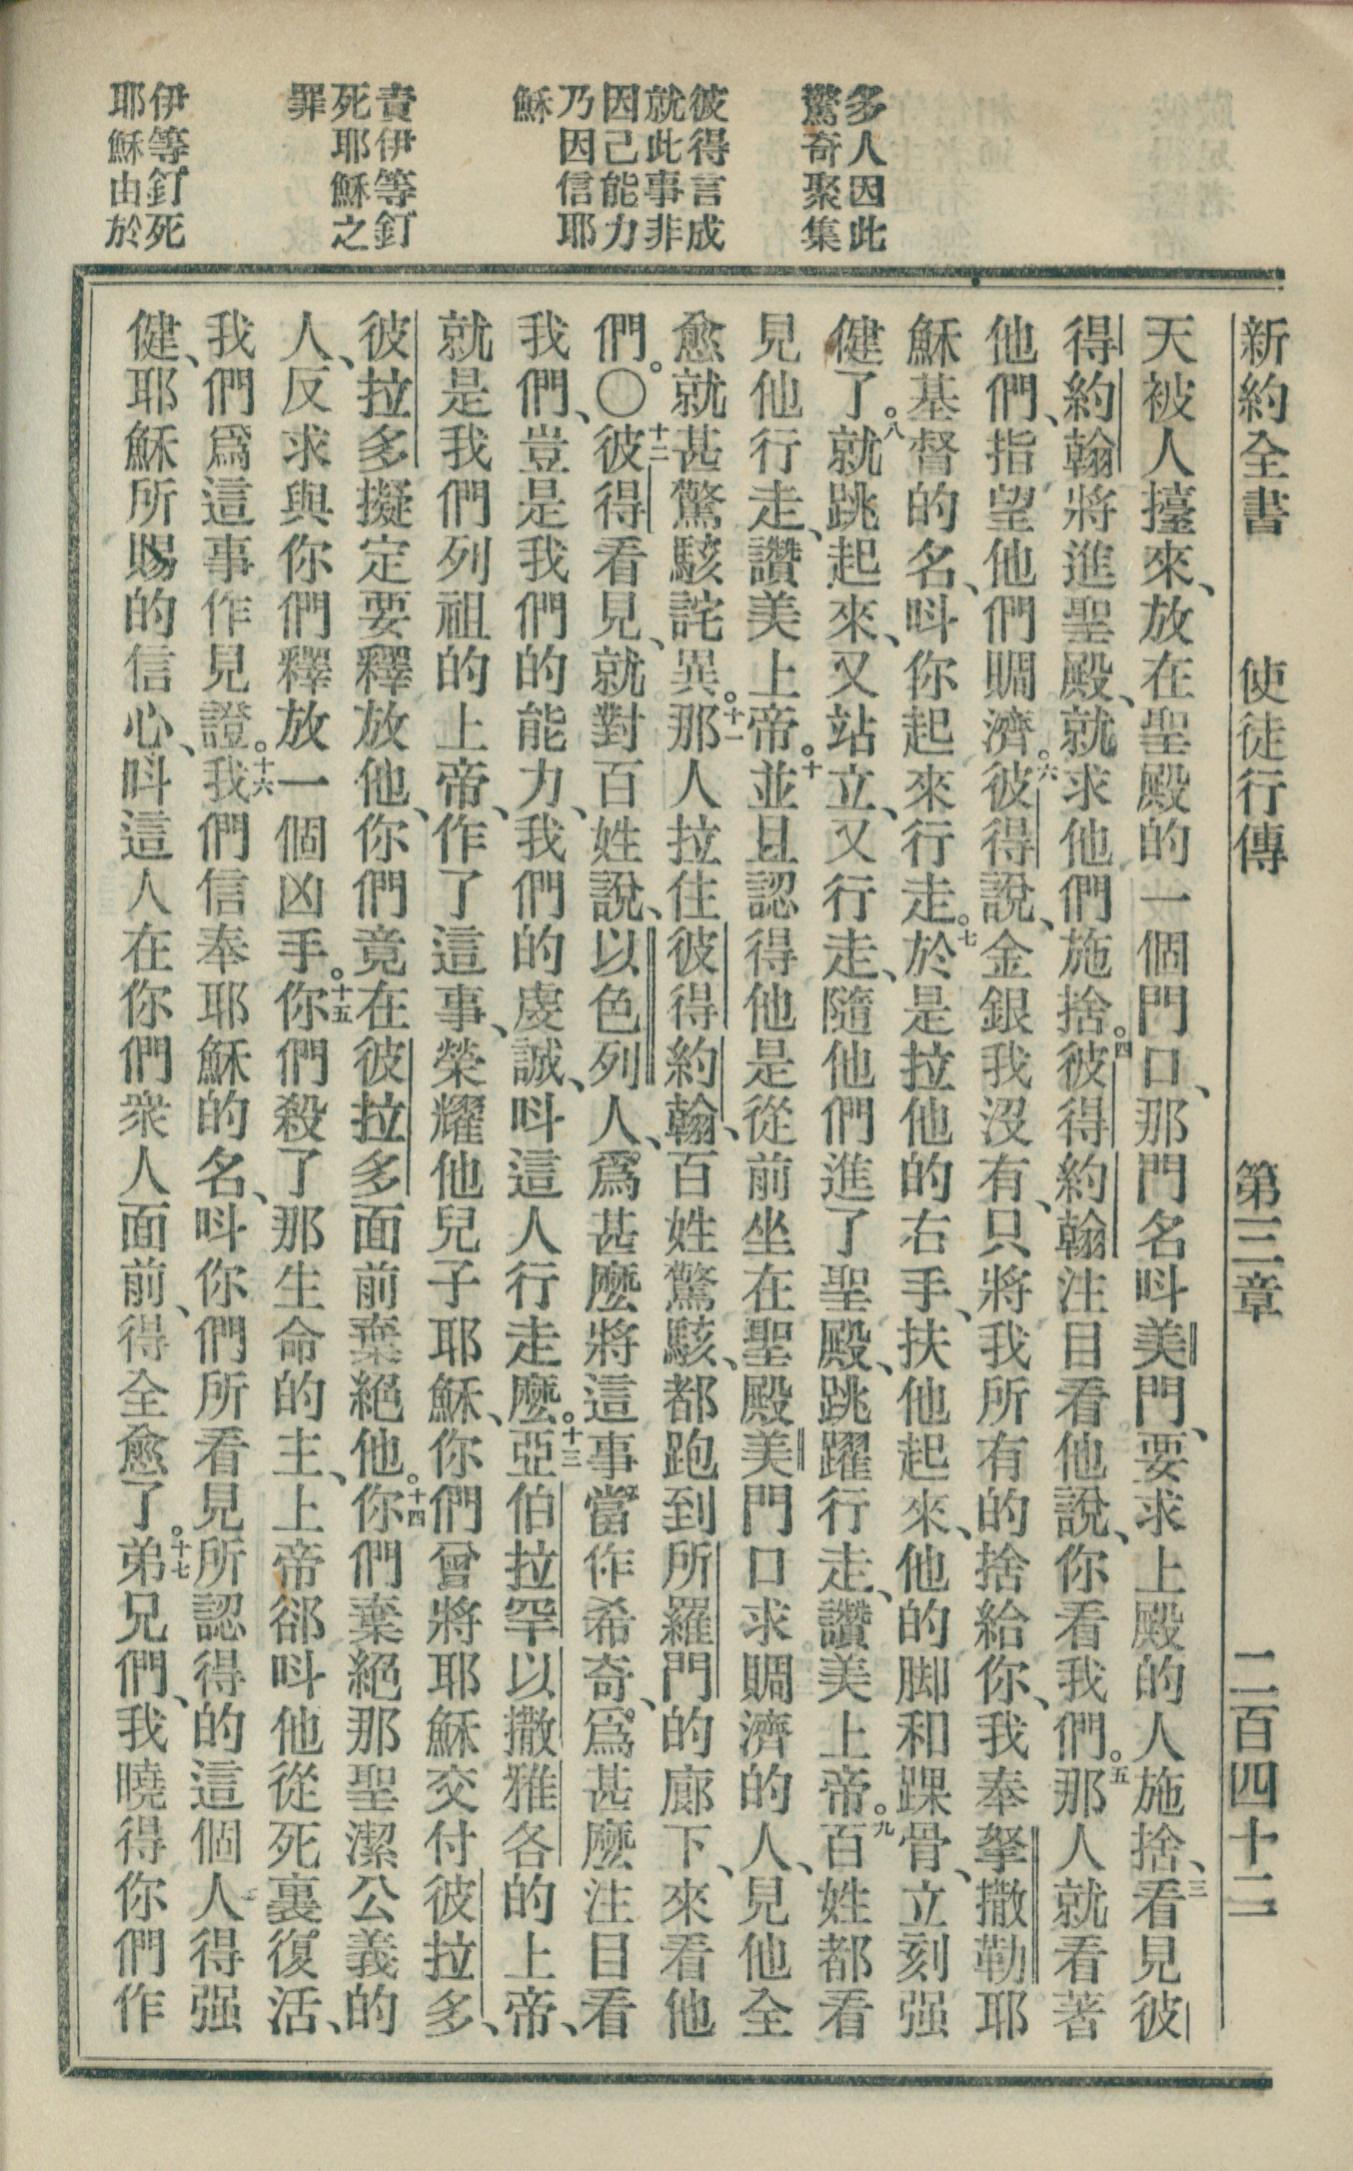 新約全書　使徒行傳　第三章　二百四十二
天被人擡來、放在聖殿的一個門口、那門名呌美門、要求上殿的人施捨、三看見彼
得約翰將進聖殿、就求他們施捨。四彼得約翰注目看他說、你看我們。五那人就看著
他們、指望他們賙濟。六彼得說、金銀我沒有、只將我所有的捨給你、我奉拏撒勒耶
穌基督的名、呌你起來行走。七於是拉他的右手、扶他起來、他的脚和踝骨、立刻强
健了。八就跳起來、又站立、又行走、隨他們進了聖殿、跳躍行走、讚美上帝。九百姓都看
見他行走、讚美上帝。十並且認得他是從前坐在聖殿美門口求賙濟的人、見他全
愈就甚驚駭詫異。十一那人拉住彼得約翰、百姓驚駭、都跑到所羅門的廊下、來看他
們。〇十二彼得看見、就對百姓說、以色列人、爲甚麼將這事當作希奇、爲甚麼注目看
我們、豈是我們的能力、我們的虔誠、呌這人行走麼。十三亞伯拉罕以撒雅各的上帝、
就是我們列祖的上帝、作了這事、榮耀他兒子耶穌、你們曾將耶穌交付彼拉多、
彼拉多擬定要釋放他、你們竟在彼拉多面前棄絕他。十四你們棄絕那聖潔公義的
人、反求與你們釋放一個凶手。十五你們殺了那生命的主、上帝卻呌他從死裏復活、
我們爲這事作見證。十六我們信奉耶穌的名、呌你們所看見所認得的這個人得强
健、耶穌所賜的信心、呌這人在你們衆人面前、得全愈了。十七弟兄們、我曉得你們作
多人因此
驚奇聚集
彼得言成
就此事非
因己能力
乃因信耶
穌
責伊等釘
死耶穌之
罪
伊等釘死
耶穌由於